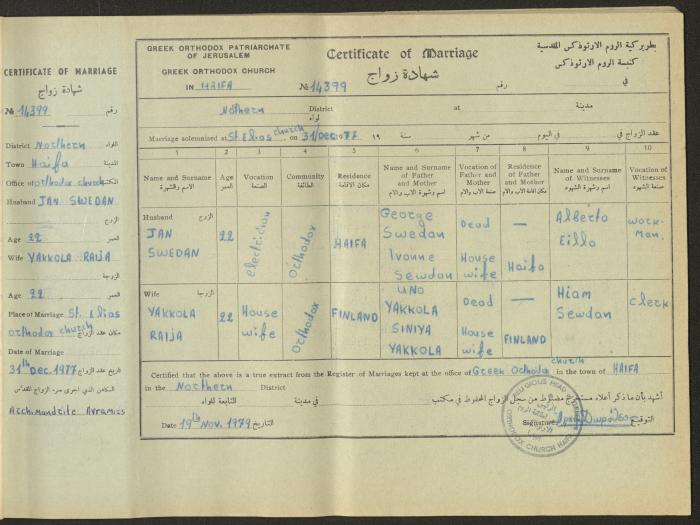 CERTIFICATE OF MARRIAGE
شهادة زواج
№ 14399 رقم
District Northern اللواء
Town Haifa المدينة
Office orthodox church المكتب
Husband JAN SWEDAN
الزوج
Age 22 العمر
Wife YAKKOLA RAIJA
الزوجة
Age 22 العمر
Place of Marriage St. Elias
orthodox church مكان عقد الزواج
Date of Marriage
31th Dec. 1977 تاريخ عقد الزواج
الكاهن الذي اجرى سر الزواج المقدس
Archimandrite Avramios
GREEK ORTHODOX PATRIARCHATE
OF JERUSALEM
GREEK ORTHODOX CHURCH
IN HAIFA
Certificate of Marriage
شهادة زواج
№ 14399 رقم
بطريركية الروم الارثوذكس المقدسية
كنيسة الروم الارثوذكس
في
Nothern District at مدينة
لواء
Marriage solemnised at St. Elias church on 31/Dec. 1977 19 سنة من شهر في اليوم عقد الزواج في
1 2 3 4 5 6 7 8 9 10
Name and Surname
الاسم والشهرة
Age
العمر
Vocation
الصنعة
Community
الطائفة
Residence
مكان الاقامة
Name and Surname of Father and Mother
اسم وشهرة الاب والام
Vocation of Father and Mother
صنعة الاب والام
Residence of Father and Mother
مكان اقامة الاب والام
Name and Surname of Witnesses
اسم وشهرة الشهود
Vocation of Witnesses
صنعة الشهود
Husband الزوج
JAN
SWEDAN
22
electrician
Orthodox
HAIFA
George
Swedan
Ivonne
Sewdan
Dead
House
wife
—
Haifa
Alberto
Eillo
work-
man.
Wife الزوجة
YAKKOLA
RAIJA
22
House
wife
Orthodox
FINLAND
UNO
YAKKOLA
SINIYA
YAKKOLA
Dead
House
wife
—
FINLAND
Hiam
Sewdan
clerk
Certified that the above is a true extract from the Register of Marriages kept at the office of Greek Othodo church in the town of HAIFA
in the Northern District
أشهد بأن ما ذكر أعلاه مستخرج مضبوط من سجل الزواج المحفوظ في مكتب
في مدينة التابعة للواء
Date 19th Nov. 1979 التاريخ
Signature التوقيع
RELIGIOUS HEAD
ORTHODOX CHURCH HAIFA